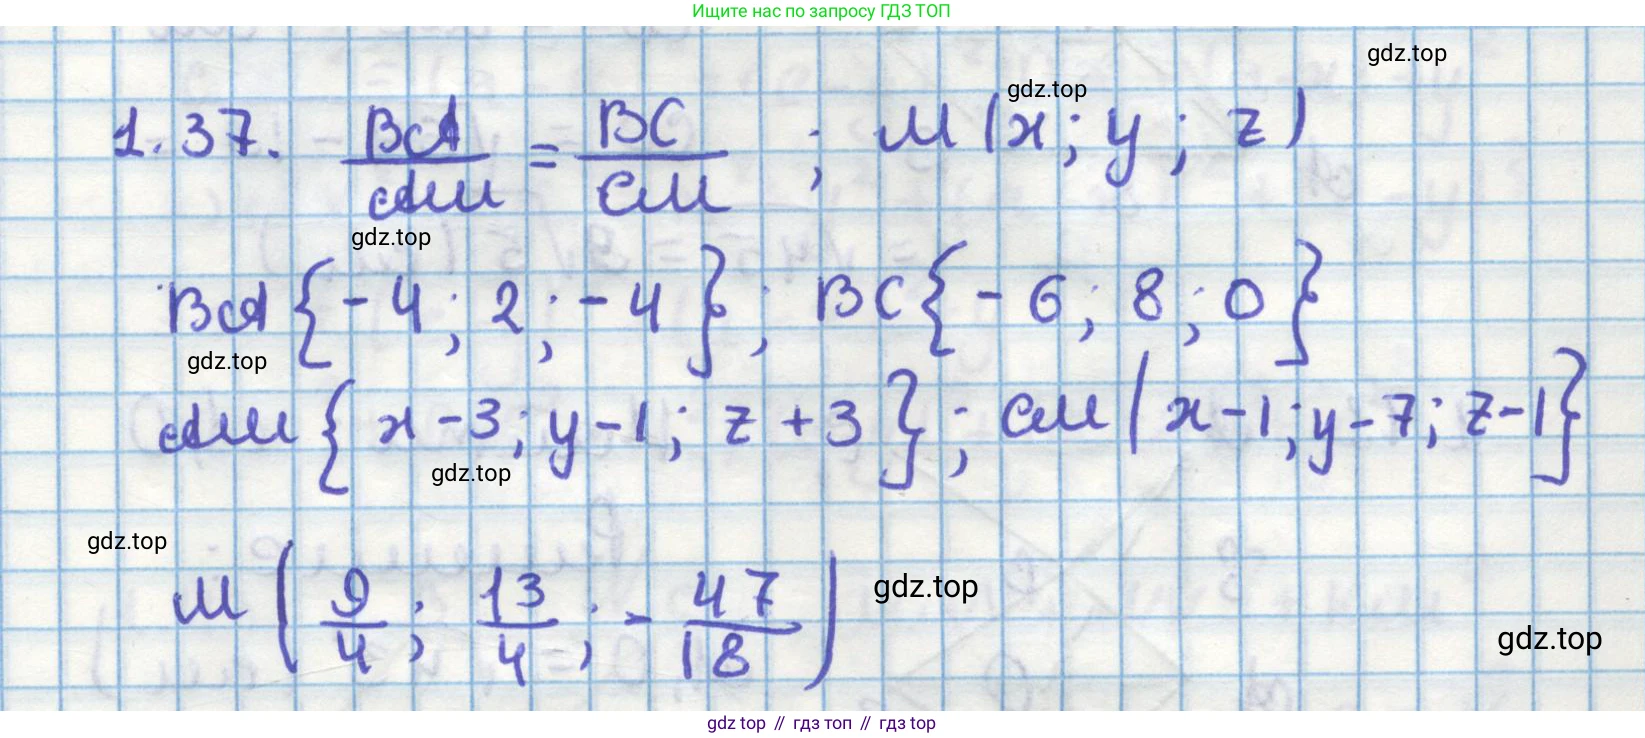 Ищите нас по запросу ГДЗ ТОП
gdz.top
gdz.top
1.37. BA/AM = BC/CM ; M(x; y; z)
gdz.top
BA{-4; 2; -4}; BC{-6; 8; 0}
gdz.top
AM{x-3; y-1; z+3}; CM(x-1; y-7; z-1}
gdz.top
gdz.top
M(9/4; 13/4; -47/18)
gdz.top
gdz.top
gdz top // гдз топ // гдз top